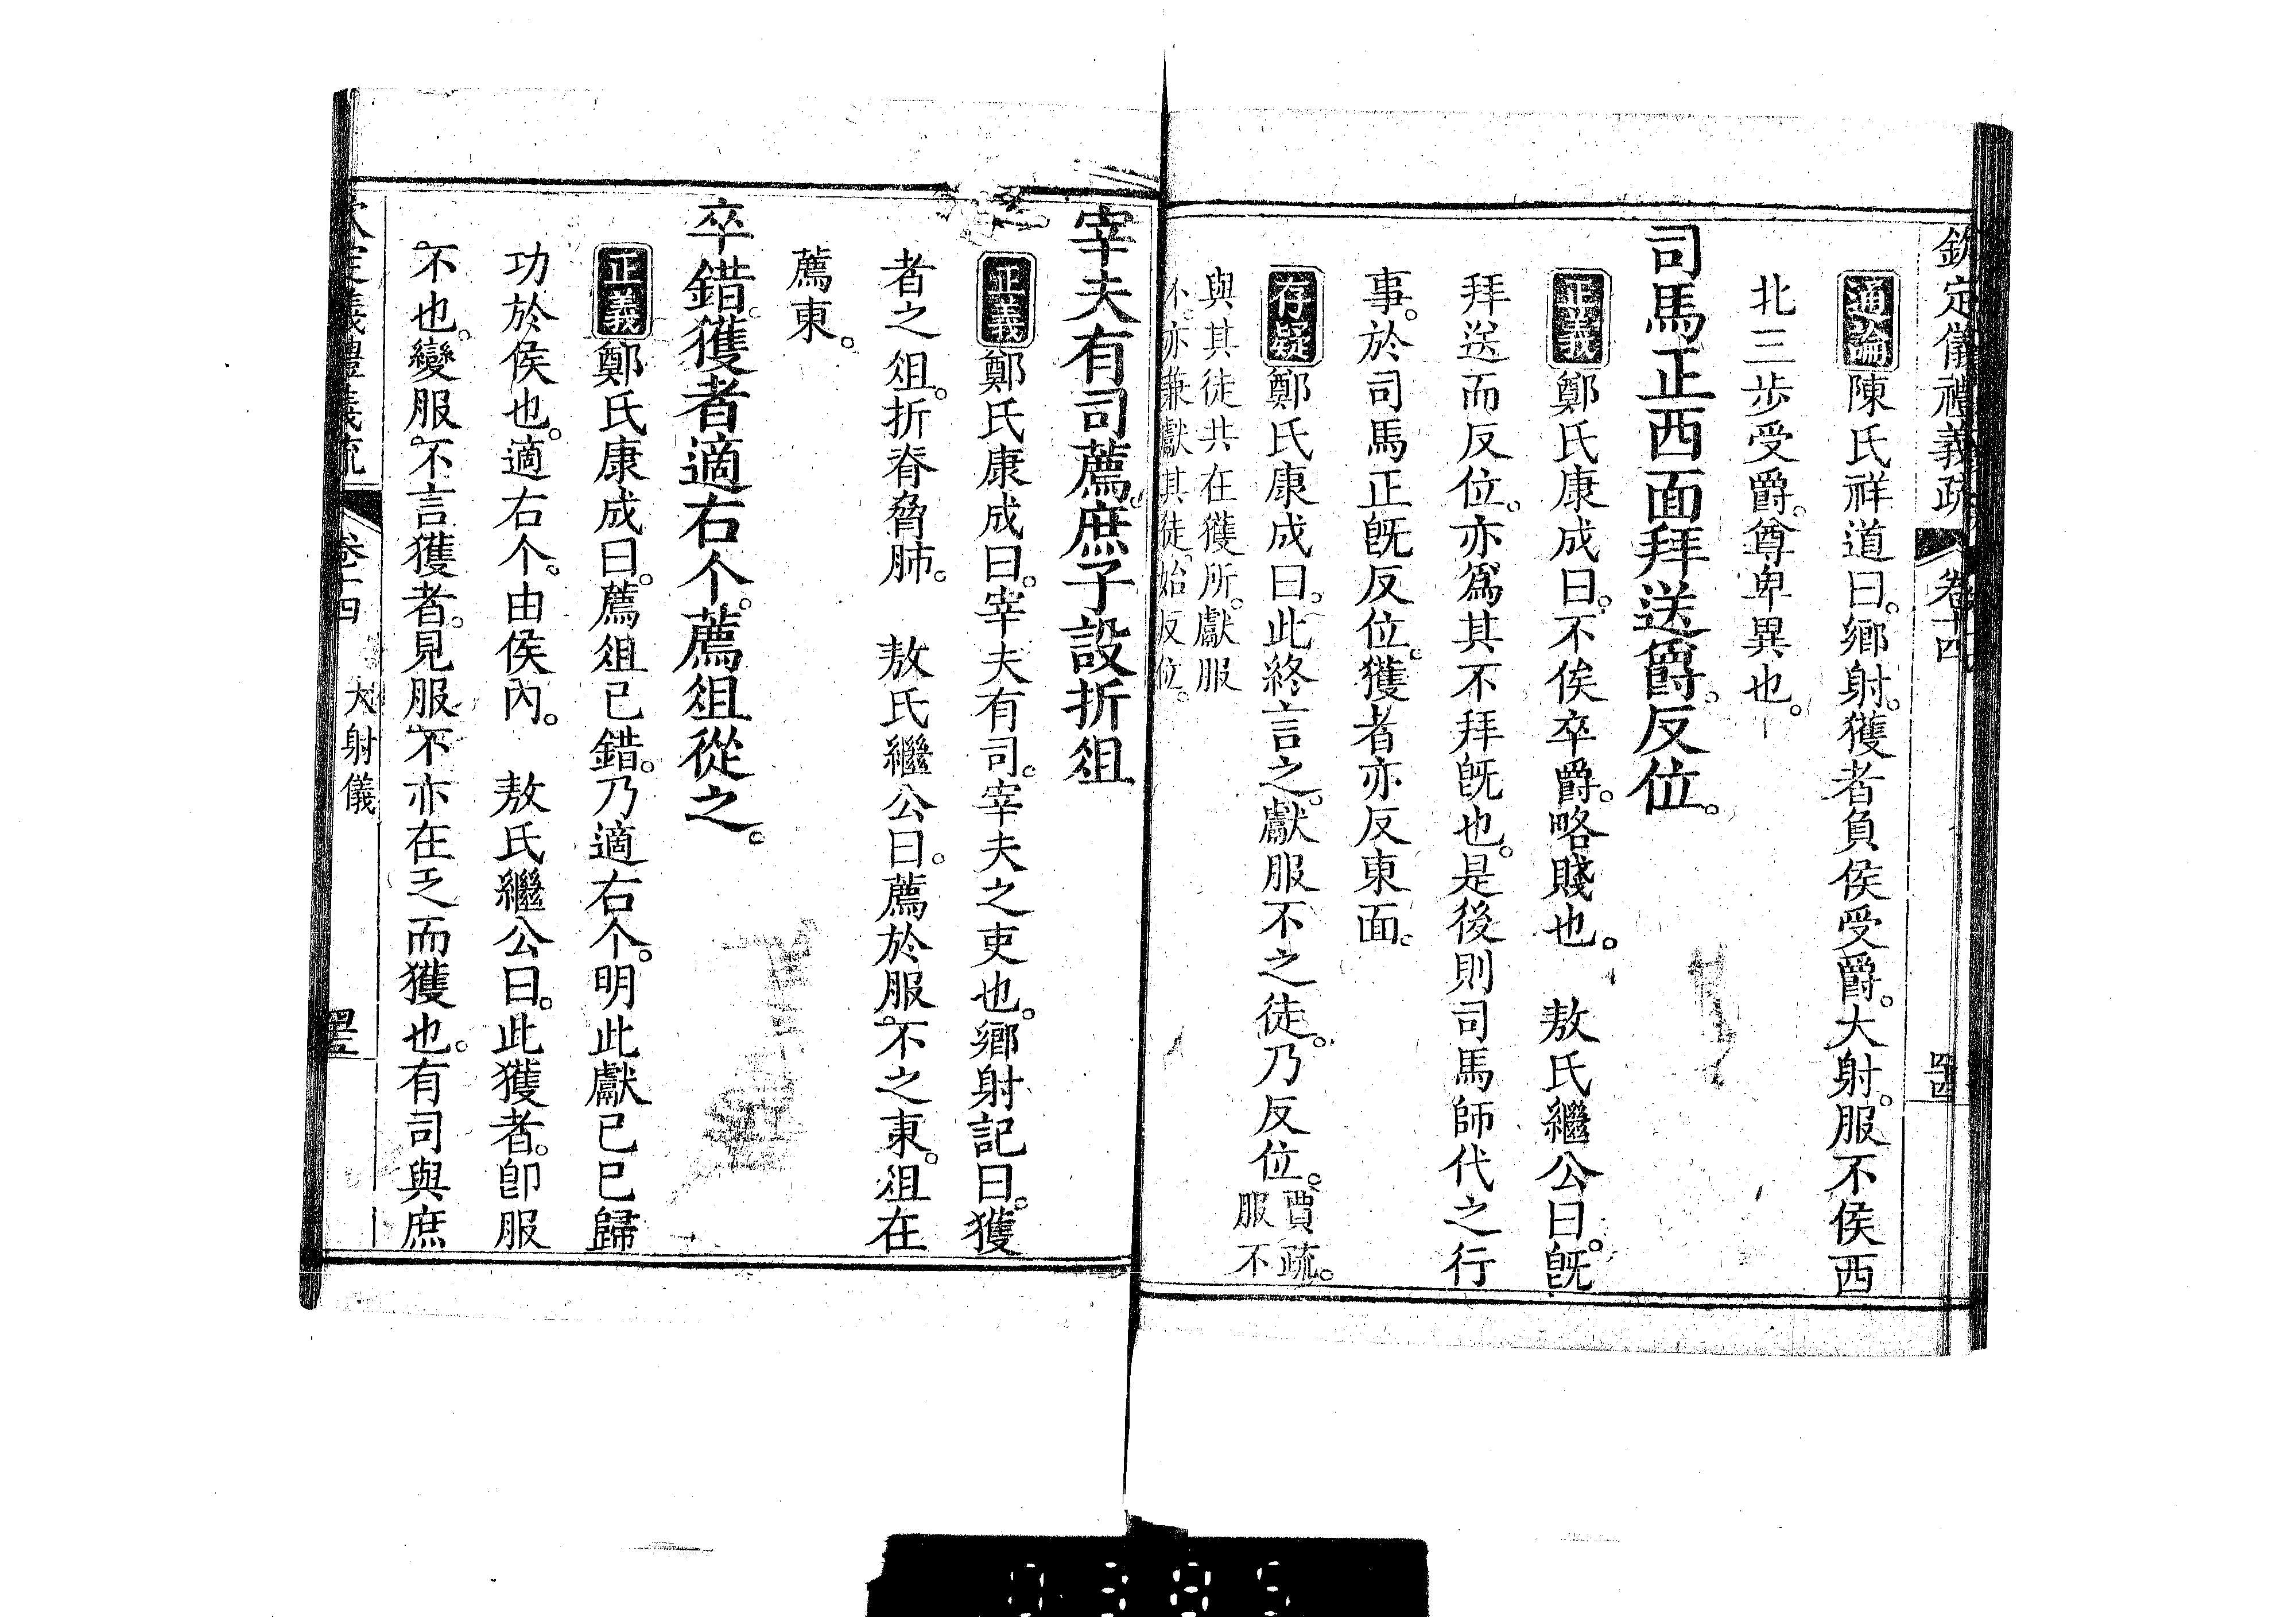 欽定儀禮義疏 卷十四 四十四
通論陳氏祥道曰。鄉射。獲者負侯受爵。大射。服不侯西
北三步受爵。尊卑異也。
司馬正西面拜送爵。反位。
正義鄭氏康成曰。不俟卒爵。略賤也。 敖氏繼公曰。旣
拜送而反位。亦爲其不拜旣也。是後則司馬師代之行
事。於司馬正旣反位。獲者亦反東面。
存疑鄭氏康成曰。此終言之。獻服不之徒。乃反位。賈疏。服不
與其徒共在獲所。獻服
不。亦兼獻其徒。始反位。
宰夫有司薦。庶子設折俎
正義鄭氏康成曰。宰夫有司。宰夫之吏也。鄉射記曰。獲
者之俎。折脊脅肺。 敖氏繼公曰。薦於服。不之東。俎在
薦東。
卒錯。獲者適右个。薦俎從之。
正義鄭氏康成曰。薦俎已錯。乃適右个。明此獻已巳歸
功於侯也。適右个。由侯內。 敖氏繼公曰。此獲者。卽服
不也。變服。不言獲者。見服。不亦在乏而獲也。有司與庶
欽定儀禮義疏 卷十四 大射儀 四十五